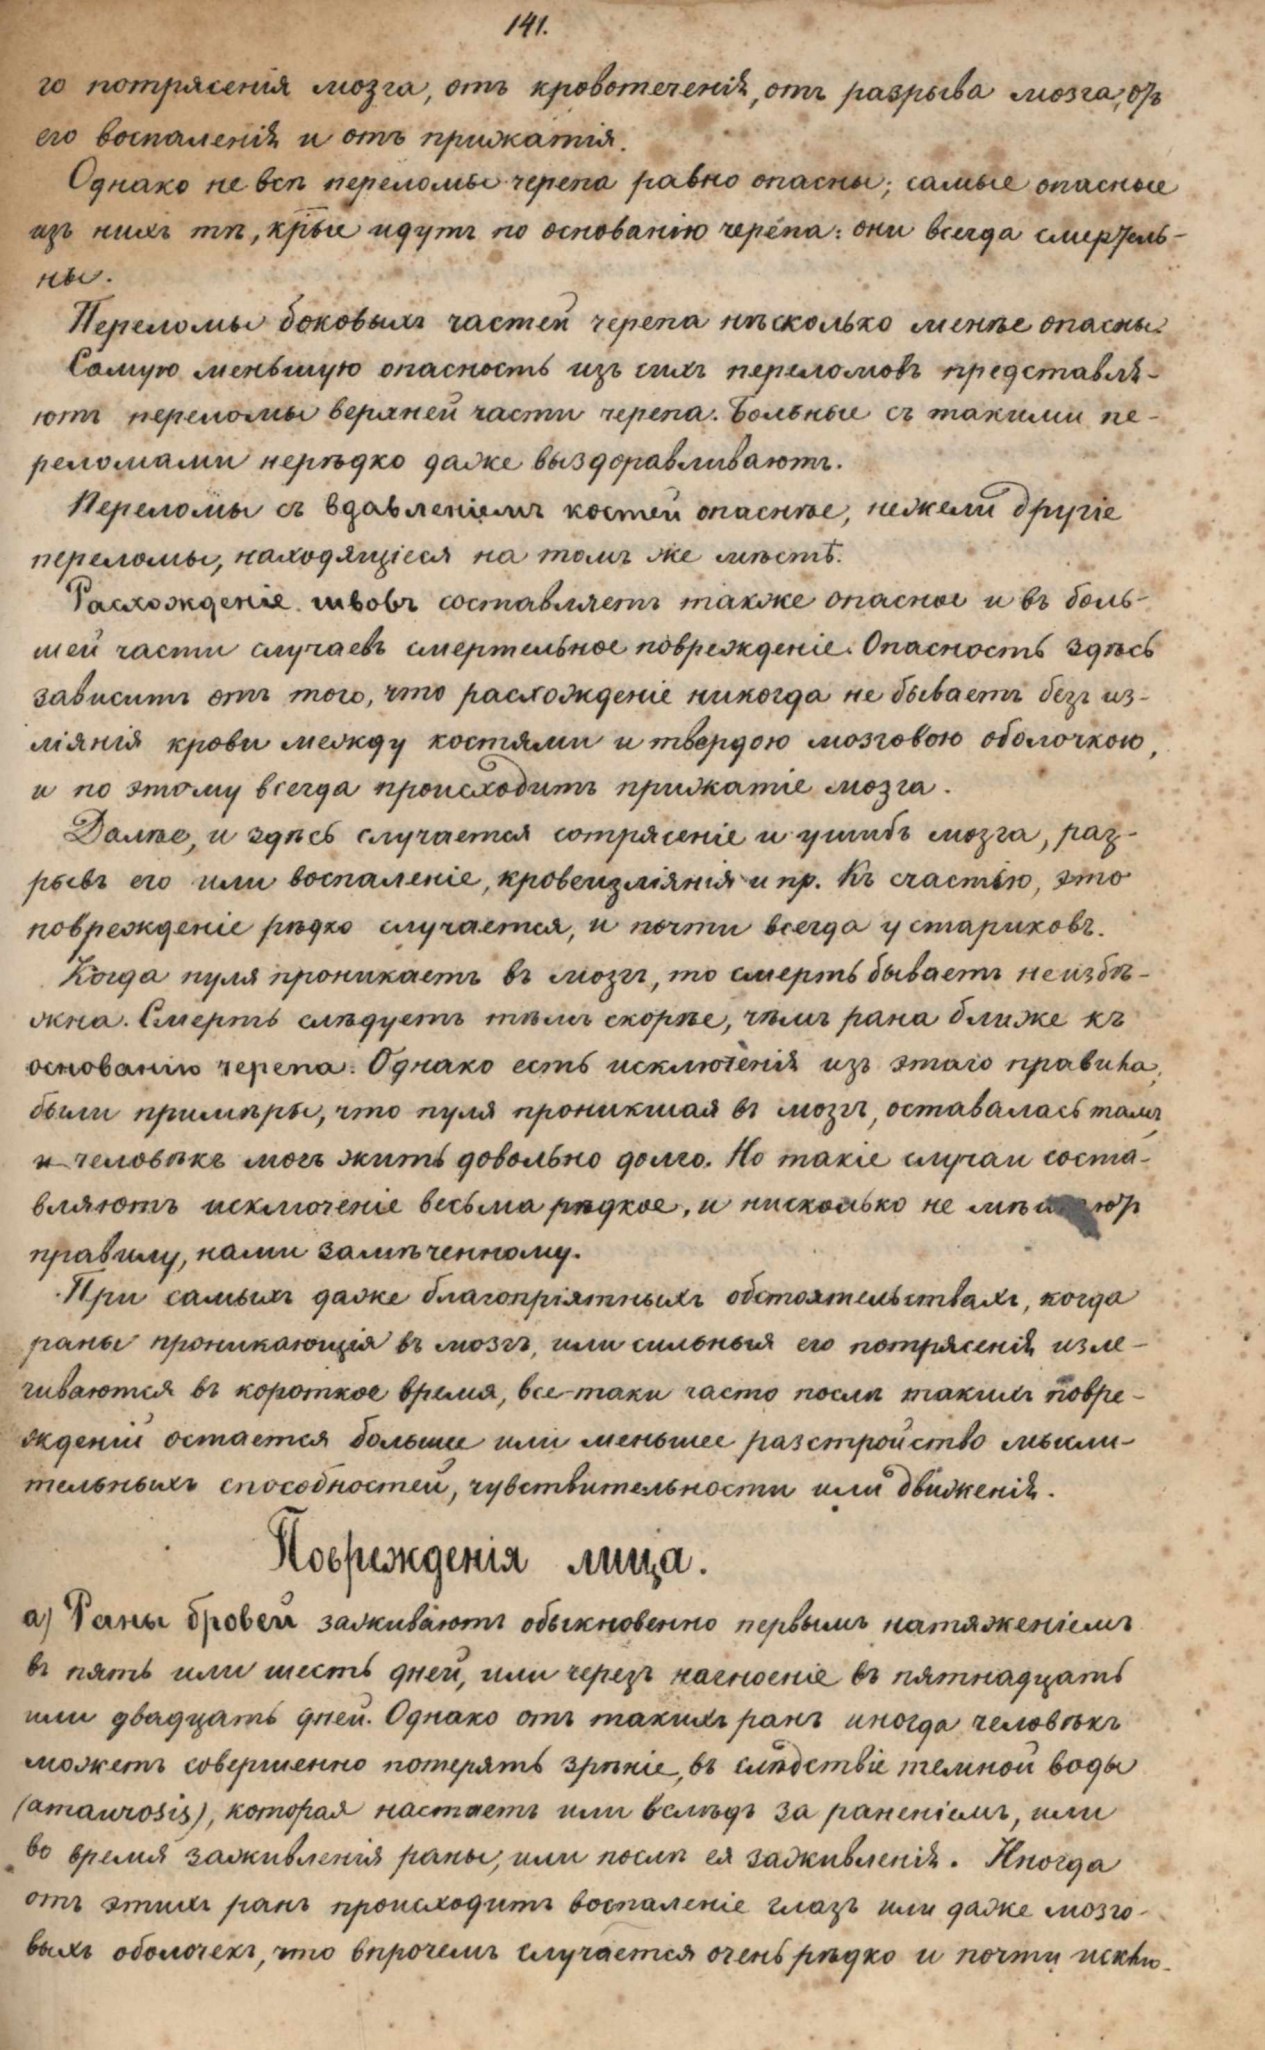 141.
го потрясенія мозга, отъ кровотеченій, отъ разрыва мозга, отъ
его воспаленій и отъ прижатія.
Однако не всѣ переломы черепа равно опасны; самые опасные
изъ нихъ тѣ, крые идутъ по основанію черепа: они всегда смертель-
ны.
Переломы боковыхъ частей черепа нѣсколько менѣе опасны.
Самую меньшую опасность изъ сихъ переломовъ представля-
ютъ переломы верхней части черепа. Больные съ такими пе-
реломами нерѣдко даже выздоравливаютъ.
Переломы съ вдавленіемъ костей опаснѣе, нежели другіе
переломы, находящіеся на томъ же мѣстѣ.
Расхожденіе швовъ составляетъ также опасное и въ боль-
шей части случаевъ смертельное поврежденіе. Опасность здѣсь
зависитъ отъ того, что расхожденіе никогда не бываетъ безъ из-
ліянія крови между костями и твердою мозговою оболочкою,
и по этому всегда происходитъ прижатіе мозга.
Далѣе, и здѣсь случается сотрясеніе и ушибъ мозга, раз-
рывъ его или воспаленіе, кровеизліянія и пр. Къ счастію, это
поврежденіе рѣдко случается, и почти всегда у стариковъ.
Когда пуля проникаетъ въ мозгъ, то смерть бываетъ неизбѣ-
жна. Смерть слѣдуетъ тѣмъ скорѣе, чѣмъ рана ближе къ
основанію черепа. Однако есть исключенія изъ этаго правила;
были примѣры, что пуля проникшая въ мозгъ, оставалась тамъ,
и человѣкъ могъ жить довольно долго. Но такіе случаи соста-
вляютъ исключеніе весьма рѣдкое, и нисколько не
правилу, нами замѣченному.
При самыхъ даже благопріятныхъ обстоятельствахъ, когда
раны проникающія въ мозгъ, или сильныя его потрясенія изле-
чиваются въ короткое время, все-таки часто послѣ такихъ повре-
жденій остается большее или меньшее разстройство мысли-
тельныхъ способностей, чувствительности или движенія.
Поврежденія лица.
а) Раны бровей заживаютъ обыкновенно первымъ натяженіемъ
въ пять или шесть дней, или черезъ нагноеніе въ пятнадцать
или двадцать дней. Однако отъ такихъ ранъ иногда человѣкъ
можетъ совершенно потерять зрѣніе, въ слѣдствіе темной воды
(amaurosis), которая настаетъ или вслѣдъ за раненіемъ, или
во время заживленія раны, или послѣ ея заживленія. Иногда
отъ этихъ ранъ происходитъ воспаленіе глазъ или даже мозго-
выхъ оболочекъ, что впрочемъ случается очень рѣдко и почти исклю-